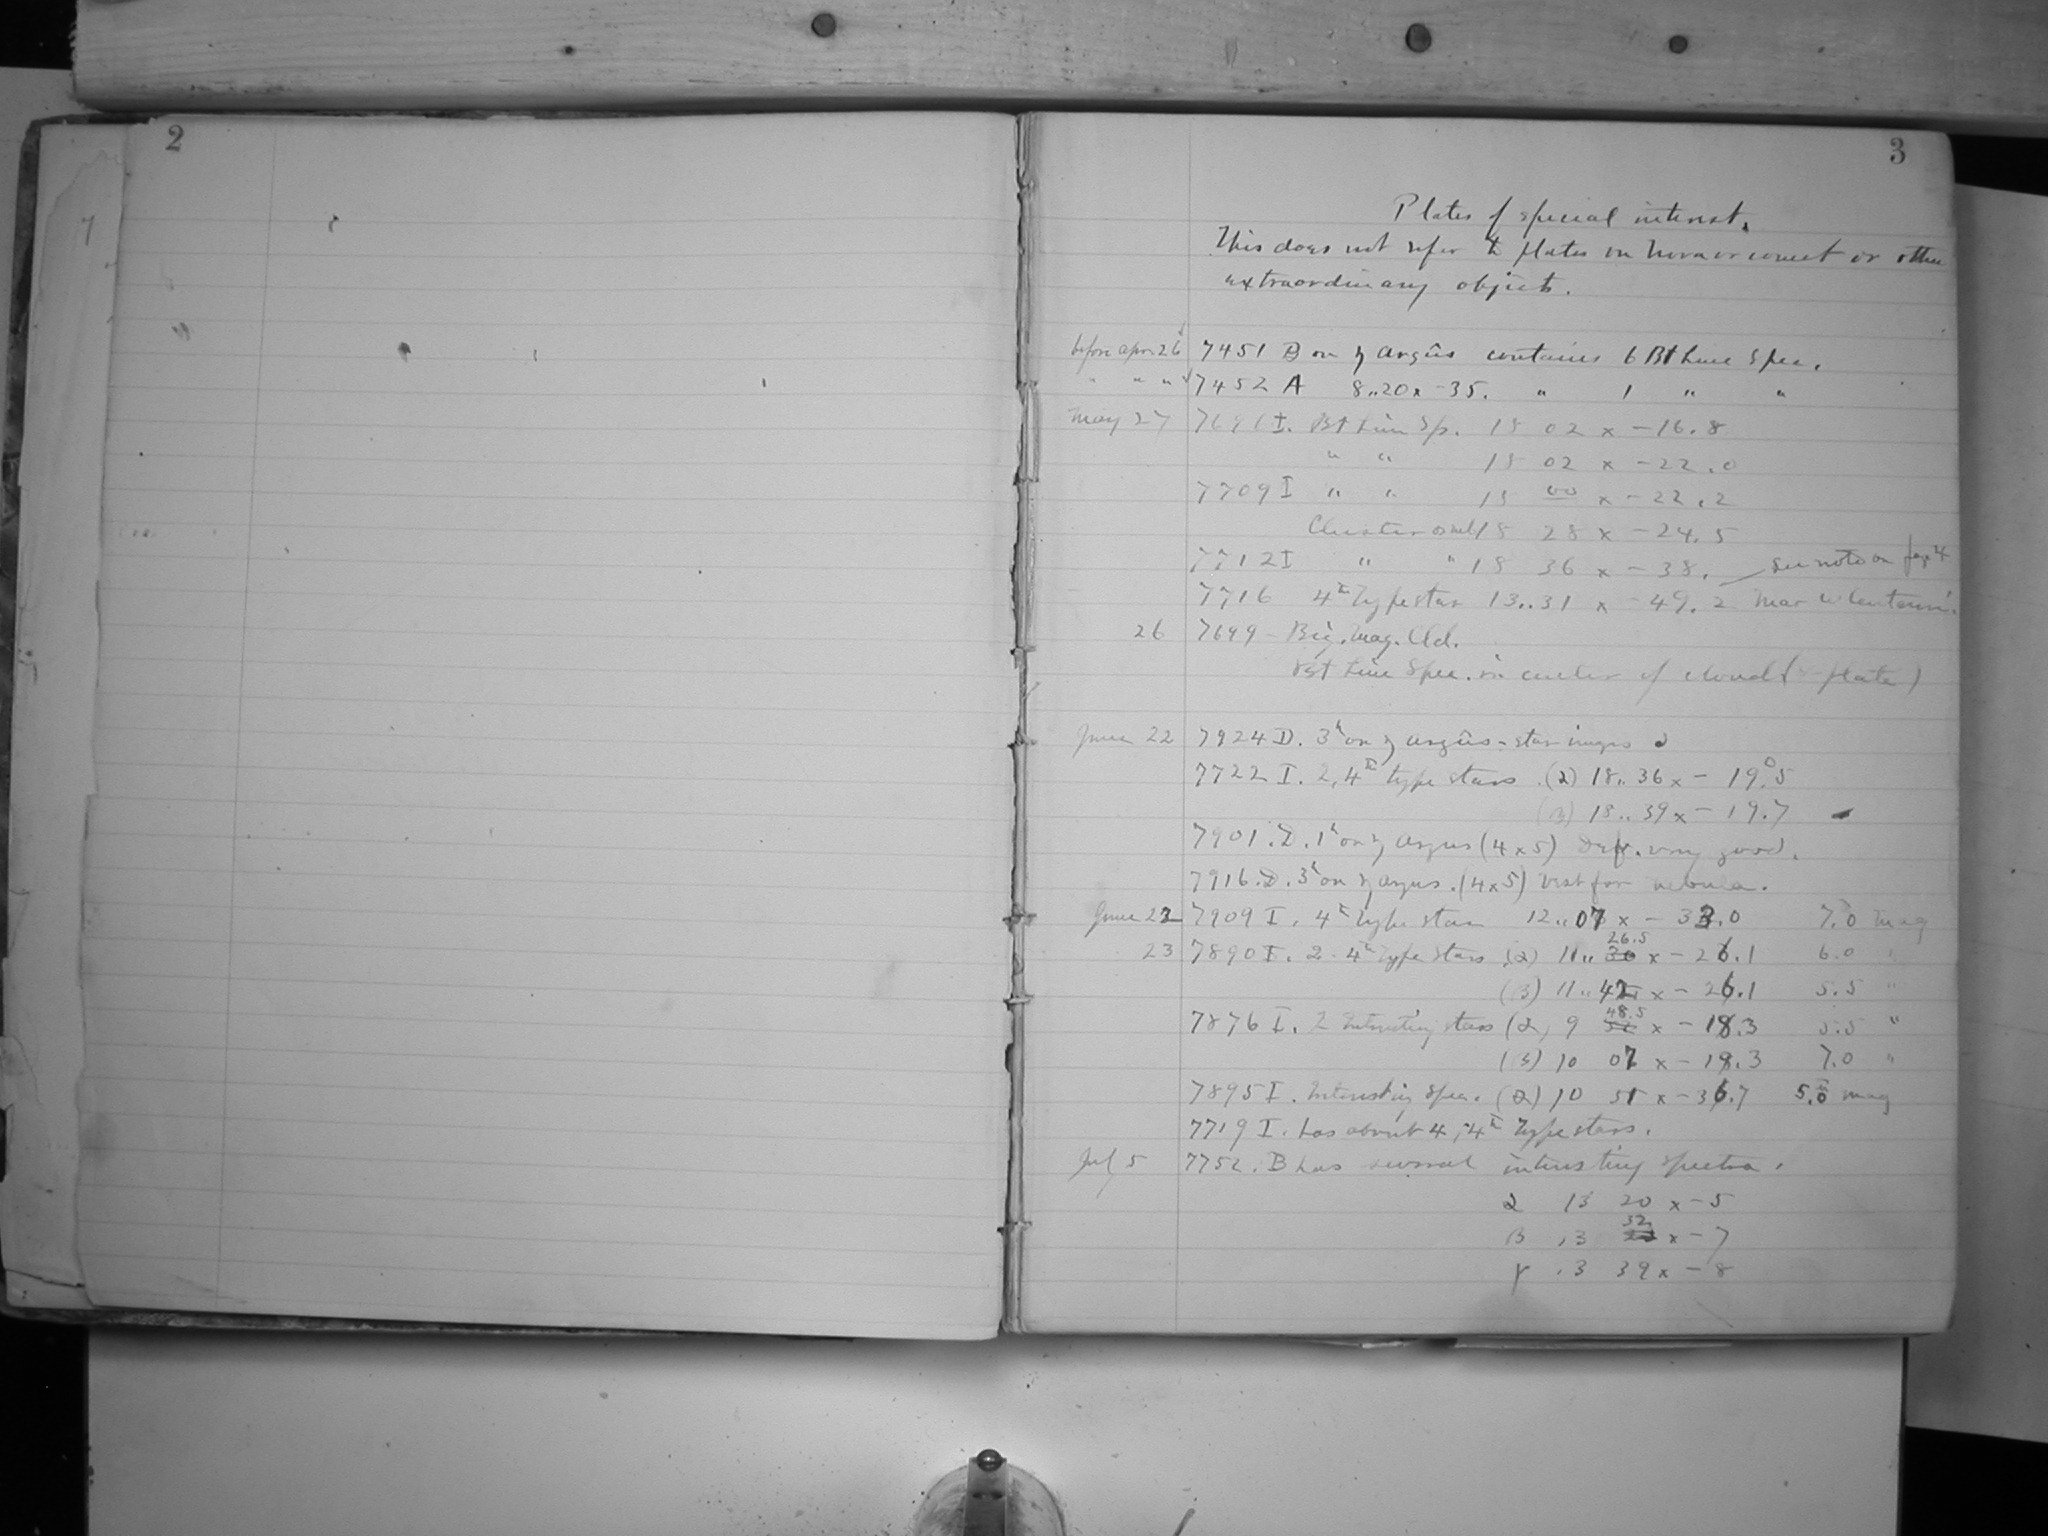 2
3
Plates of special interest.
This does not refer to plates on Nova or comet or other
extraordinary objects.
before Apr. 26 7451 B on η Argûs contains 6 Bt Line Spec.
" " " 7452 A 8..20 x -35. " 1 " "
May 27 7696 I. Bt Line Sp. 18 02 x -16.8
" " 18 02 x -22.0
7709 I " " 18 00 x -22.2
Cluster or neb 18 28 x -24.5
7712 I " " 18 36 x -38. see note on page 4
7716 4th Type star 13..31 x -49.2 near ω Centauri.
26 7699 - Big. Mag. Cld.
Bt Line Spec. in center of cloud ( plate)
June 22 7924 D. 3h on η Argûs - star images
7722 I. 2, 4th type stars (2) 18..36 x - 19°.5
(3) 18..39 x - 19.7
7901. D. 1h on η Argus (4x5) Def. very good.
7916. D. 3h on η Argus. (4x5) best for nebula.
June 22 7909 I. 4th type star 12..07 x - 33.0 7.0 mag
26.5
23 7890 I. 2 - 4th type stars (2) 11.. 30 x - 26.1 6.0 "
(3) 11..42 x - 26.1 5.5 "
48.5
7876 I. 2 Interesting stars (2) 9 x - 18.3 5.5 "
(3) 10 07 x - 18.3 7.0 "
7895 I. Interesting Spec. (2) 10 51 x - 36.7 5.0 mag
7719 I. has about 4, 4th Type stars.
Jul 5 7752. B has several interesting spectra.
α 13 20 x - 5
32
β 13 x - 7
γ 13 39 x - 8